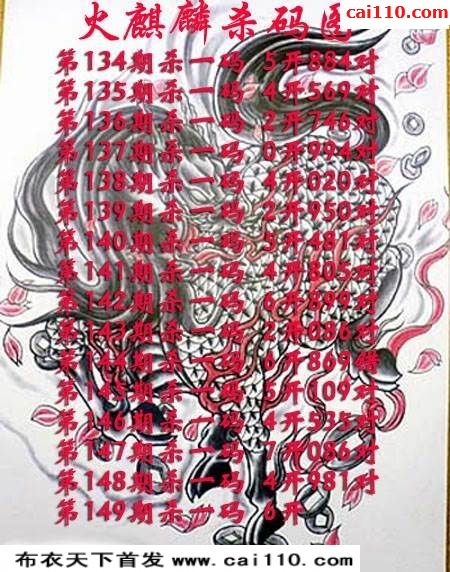 cai110.com
火麒麟杀码区
第134期杀一码 5开884对
第135期杀一码 4开569对
第136期杀一码 2开746对
第137期杀一码 0开994对
第138期杀一码 4开020对
第139期杀一码 2开950对
第140期杀一码 5开481对
第141期杀一码 4开805对
第142期杀一码 6开899对
第143期杀一码 2开086对
第144期杀一码 6开869错
第145期杀一码 5开109对
第146期杀一码 4开535对
第147期杀一码 7开086对
第148期杀一码 4开981对
第149期杀一码 6开
布衣天下首发 www.cai110.com